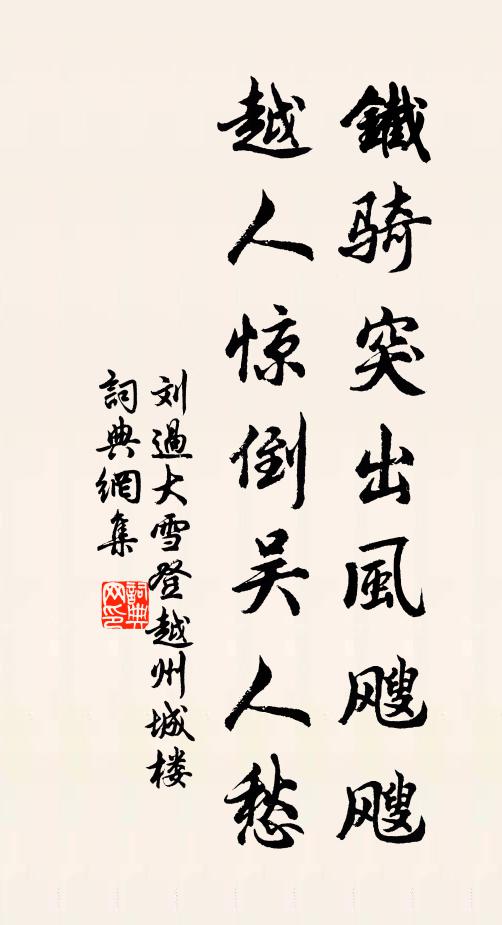 鐵骑突出風颼颼
越人惊倒吴人愁
刘過大雪登越州城楼
詞典網集
詞典网印